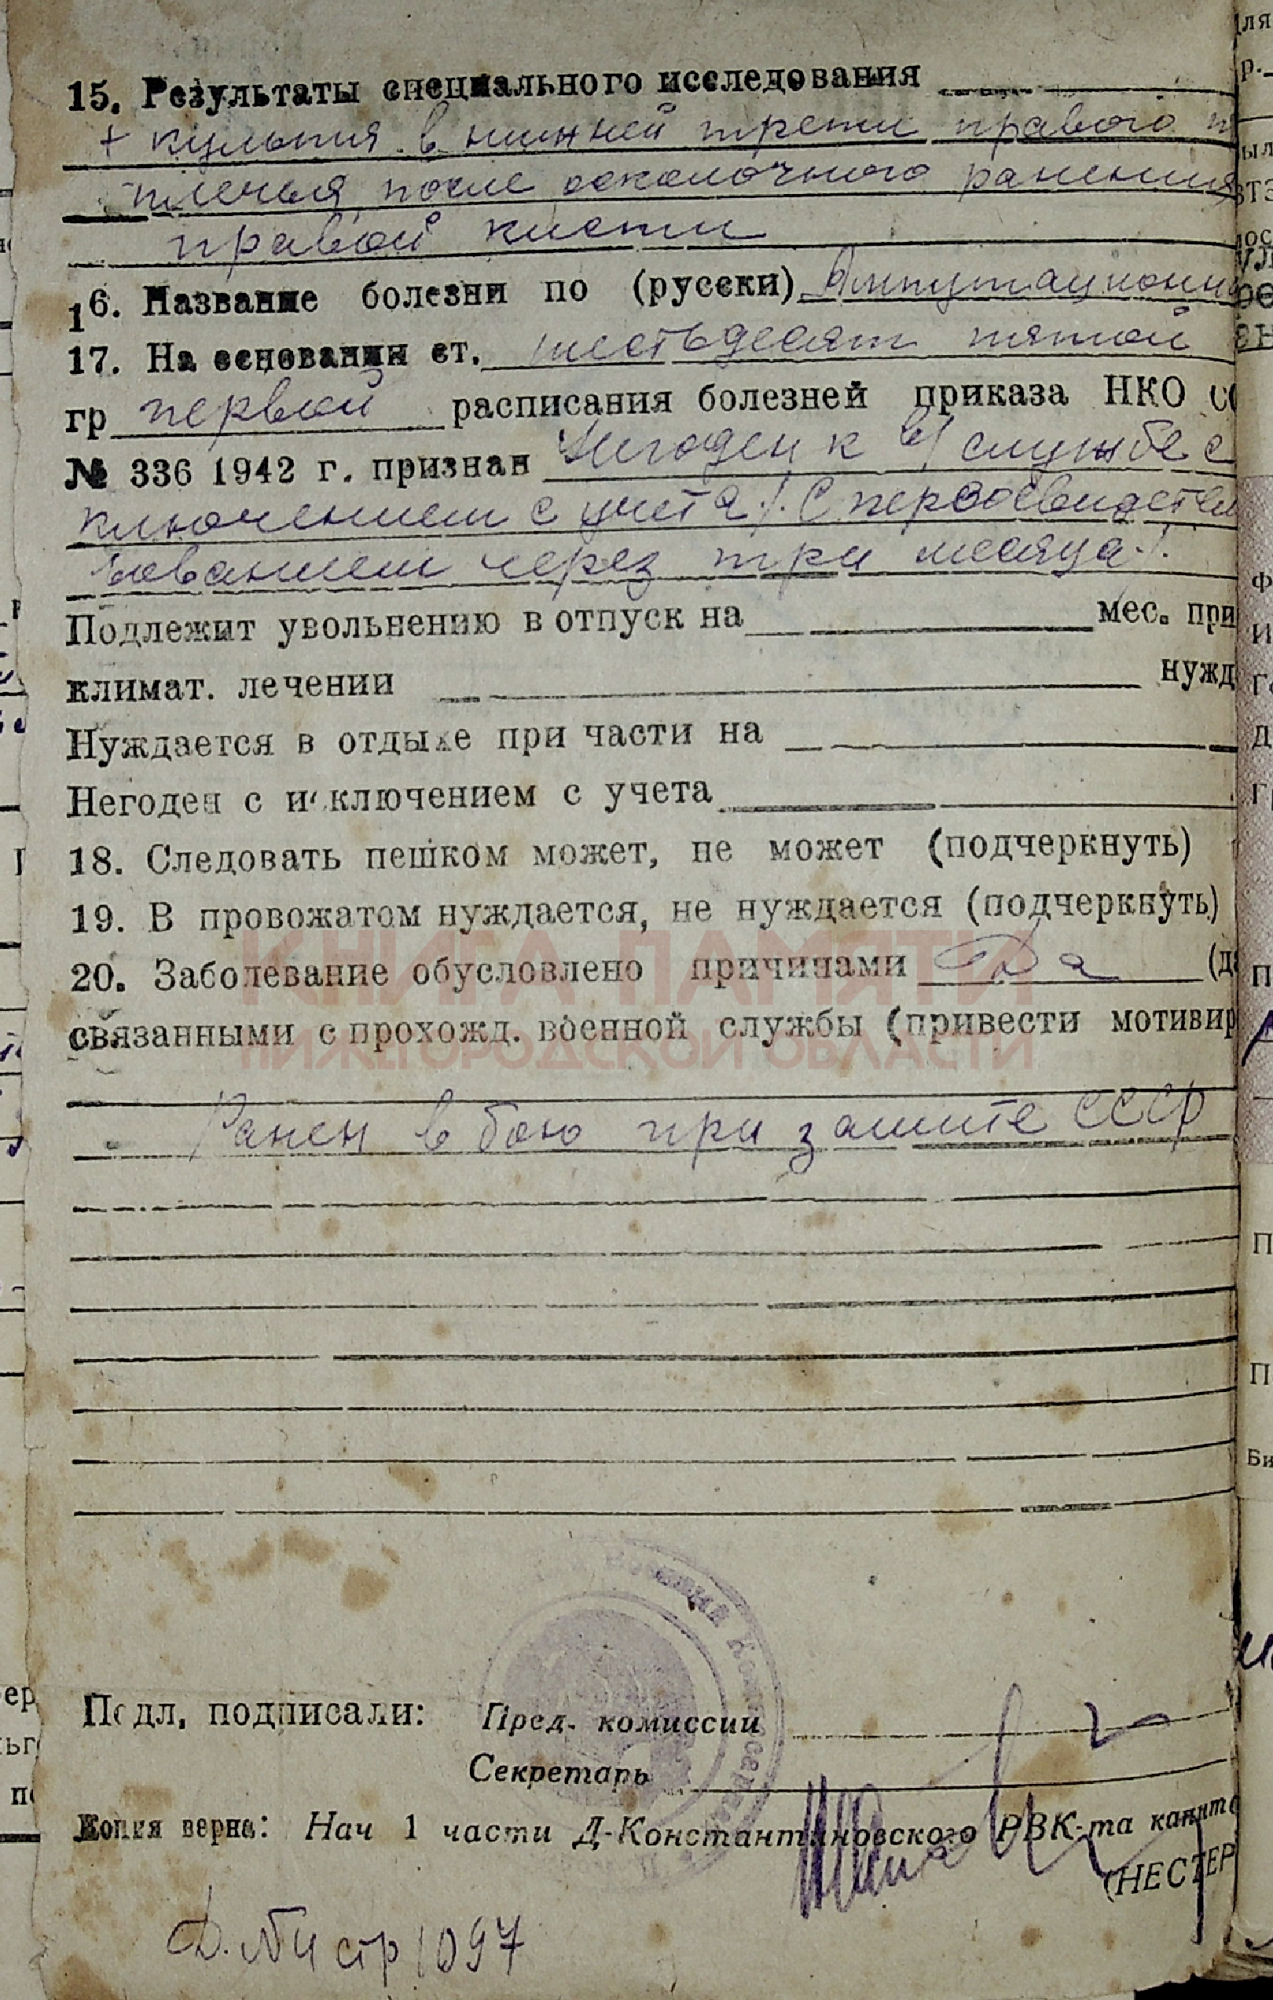 15. Результаты специального исследования
+ культя в нижней трети правого п
плечья после осколочного ранения
правой кисти
16. Название болезни по (русски) Ампутационн
17. На основании ст. шестьдесят пятой
гр первой расписания болезней приказа НКО СС
№ 336 1942 г. признан Негоден к в/ службе с
ключением с учета /. С переосвидетел
ьованием через три месяца ./.
Подлежит увольнению в отпуск на мес. при
климат. лечении нужд
Нуждается в отдыхе при части на
Негоден с исключением с учета
18. Следовать пешком может, не может (подчеркнуть)
19. В провожатом нуждается, не нуждается (подчеркнуть)
20. Заболевание обусловлено причинами Да (да
связанными с прохожд. военной службы (привести мотивир
Ранен в бою при защите СССР
КНИГА ПАМЯТИ
НИЖЕГОРОДСКОЙ ОБЛАСТИ
Подл, подписали: Пред. комиссии
Секретарь
Копия верна: Нач 1 части Д-Константиновского РВК-та капита
(НЕСТЕР
Д. №4 стр 1097